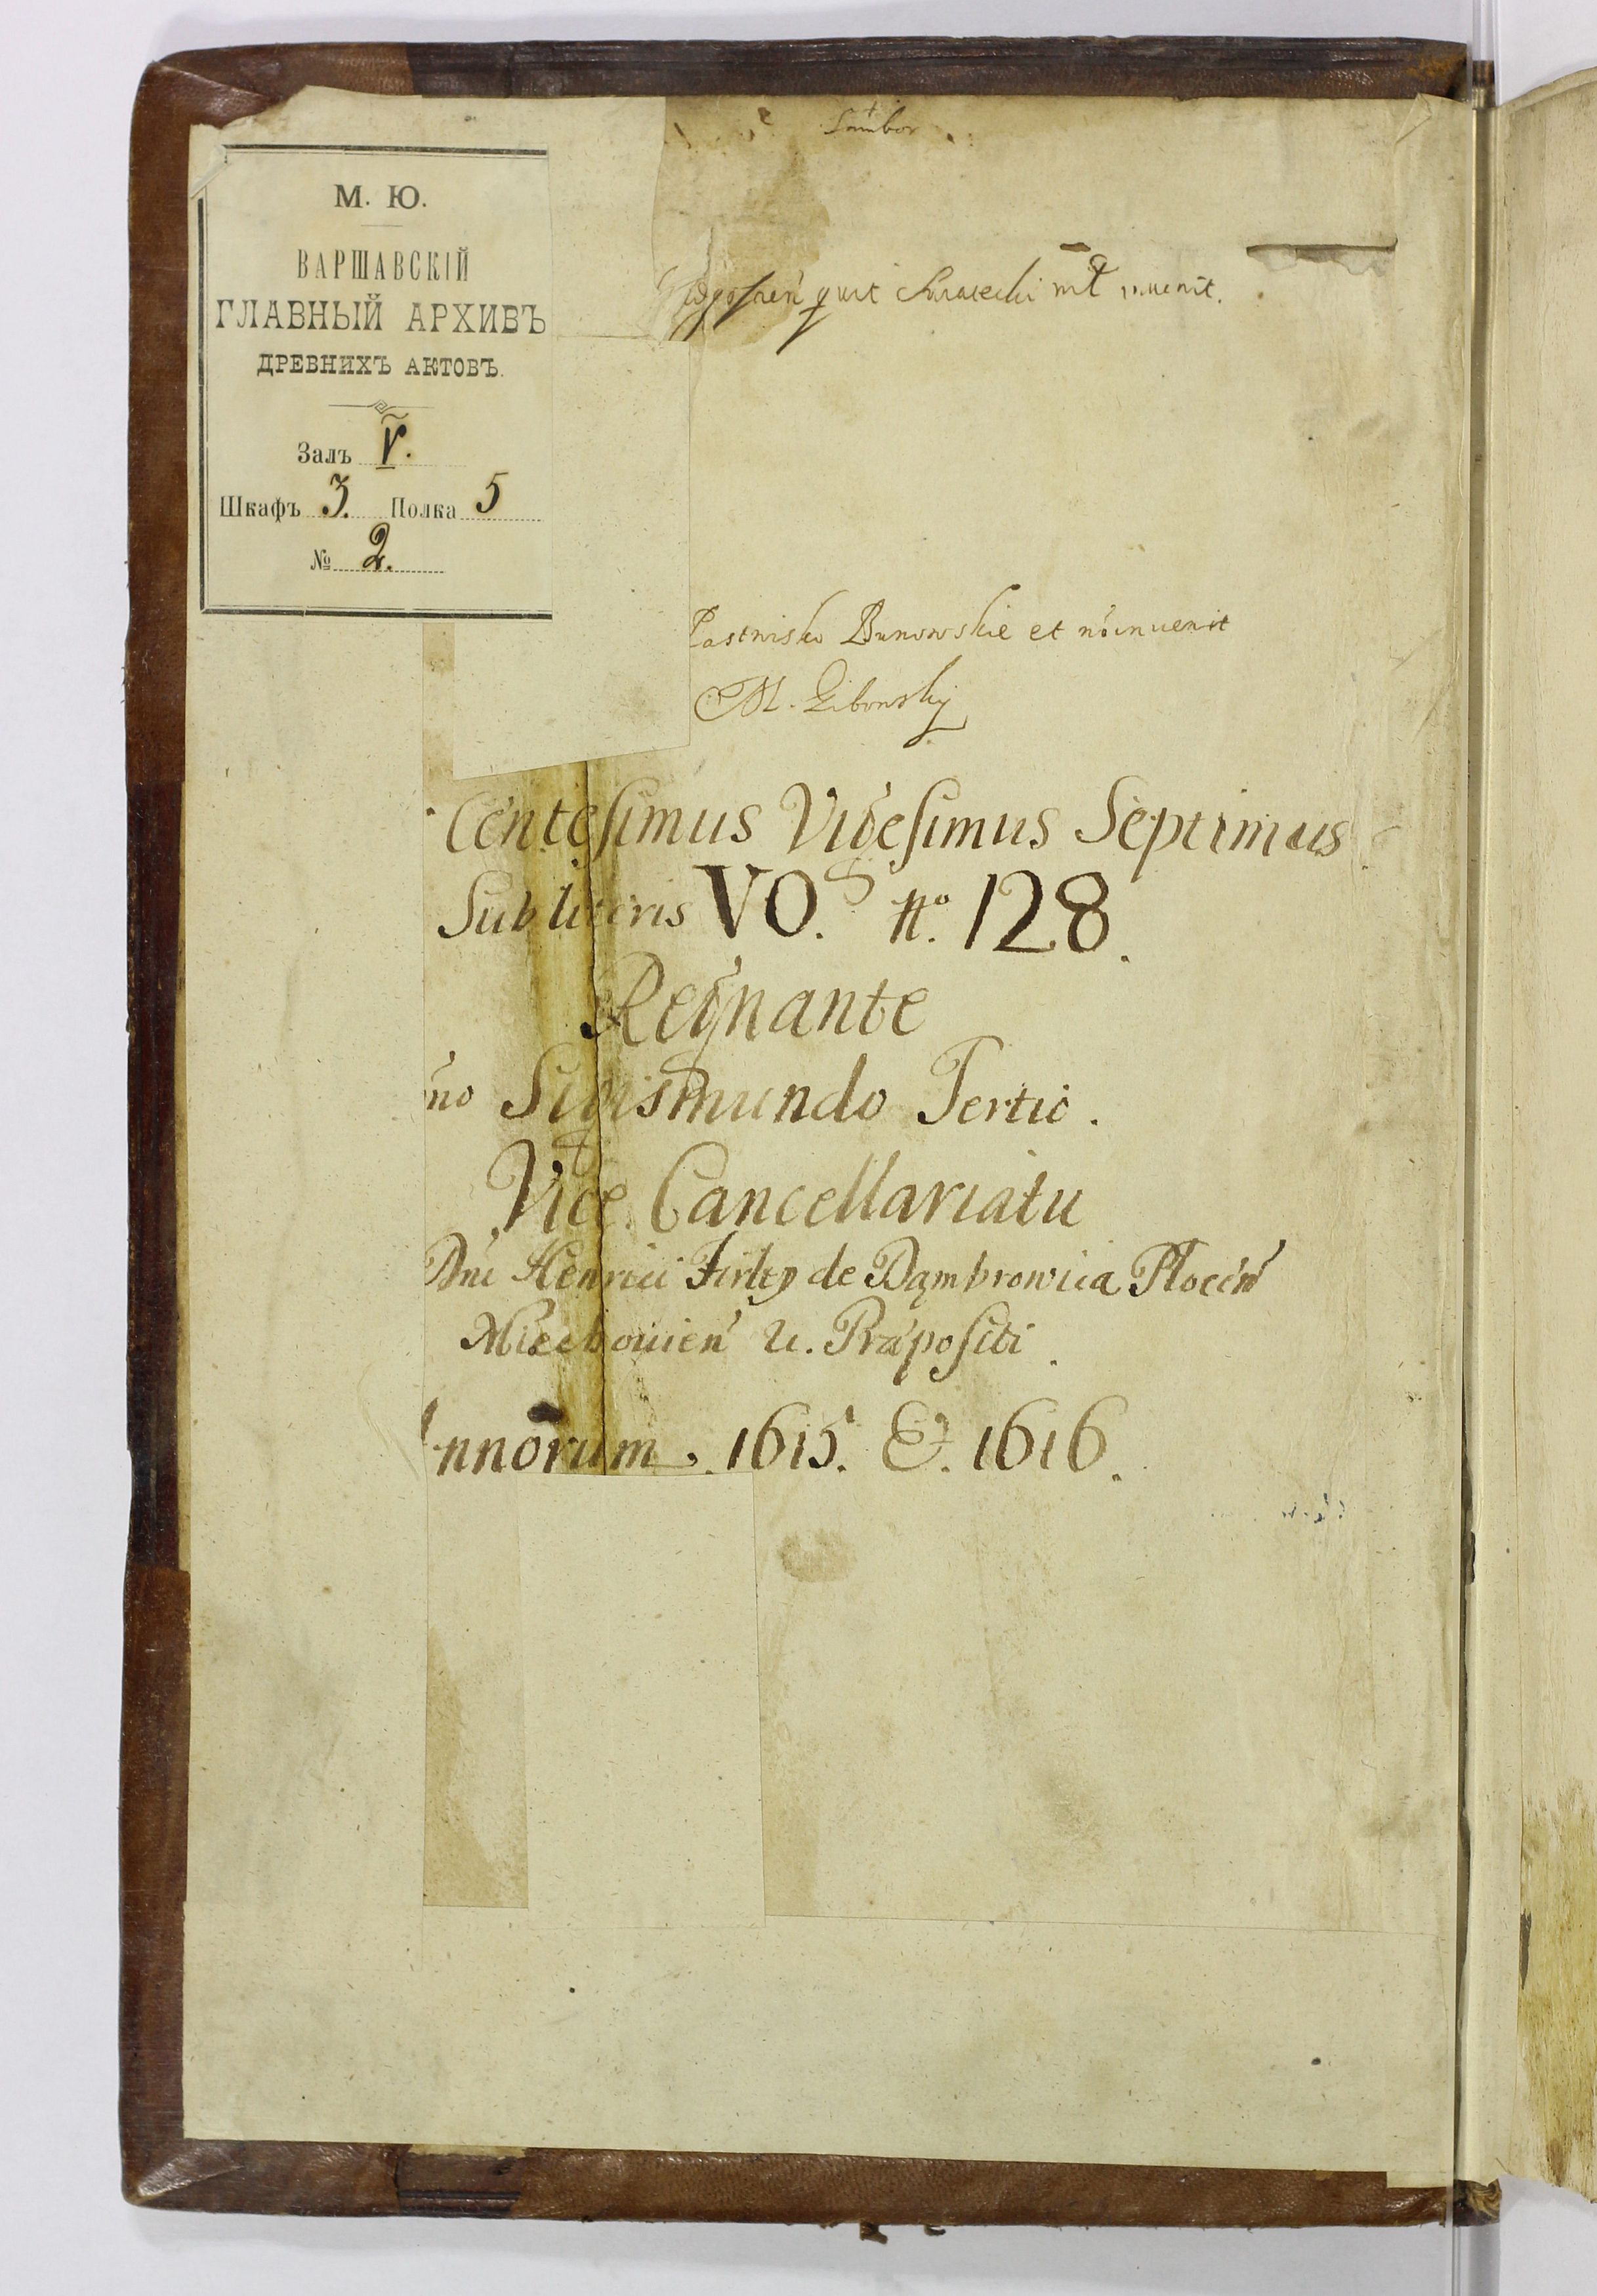 М. Ю.
ВАРШАВСКІЙ
ГЛАВНЫЙ АРХИВЪ
ДРЕВНИХЪ АКТОВЪ.
Залъ V.
Шкафъ 3. Полка 5
№ 2.
Sambor
M. Zibowskÿ
Centesimus Vigesimus Septimus
Sub literis VO. N.º 128.
Regnante
no Sigismundo Tertio.
Vice Cancellariatu
Dni Henrici Firley de Dąmbrowica Plocen
Miechouien u. Præpositi.
nnorum. 1615. Et. 1616.